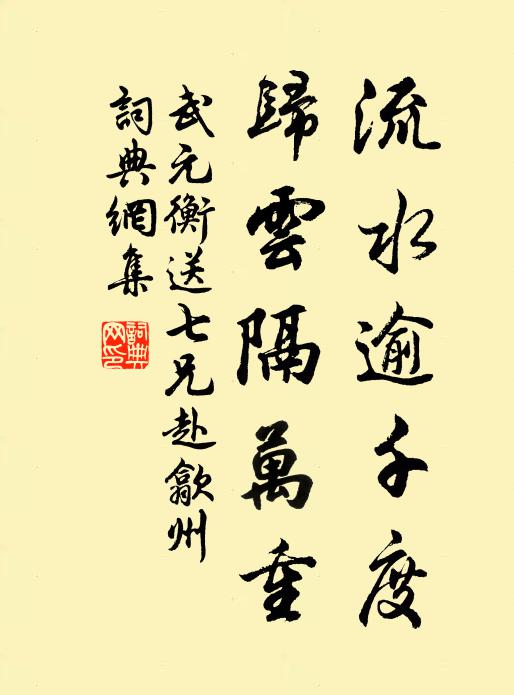 流水逾千度
歸雲隔萬重
武元衡送七兄赴歙州
詞典網集
詞典網印